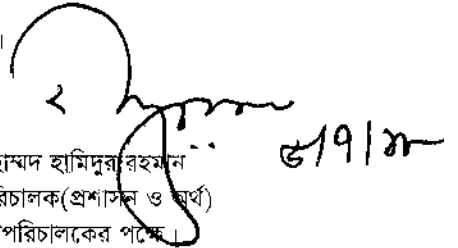 ।
হাম্মদ হামিদুর রহমান
রিচালক(প্রশাসন ও অর্থ)
পরিচালকের পক্ষে।